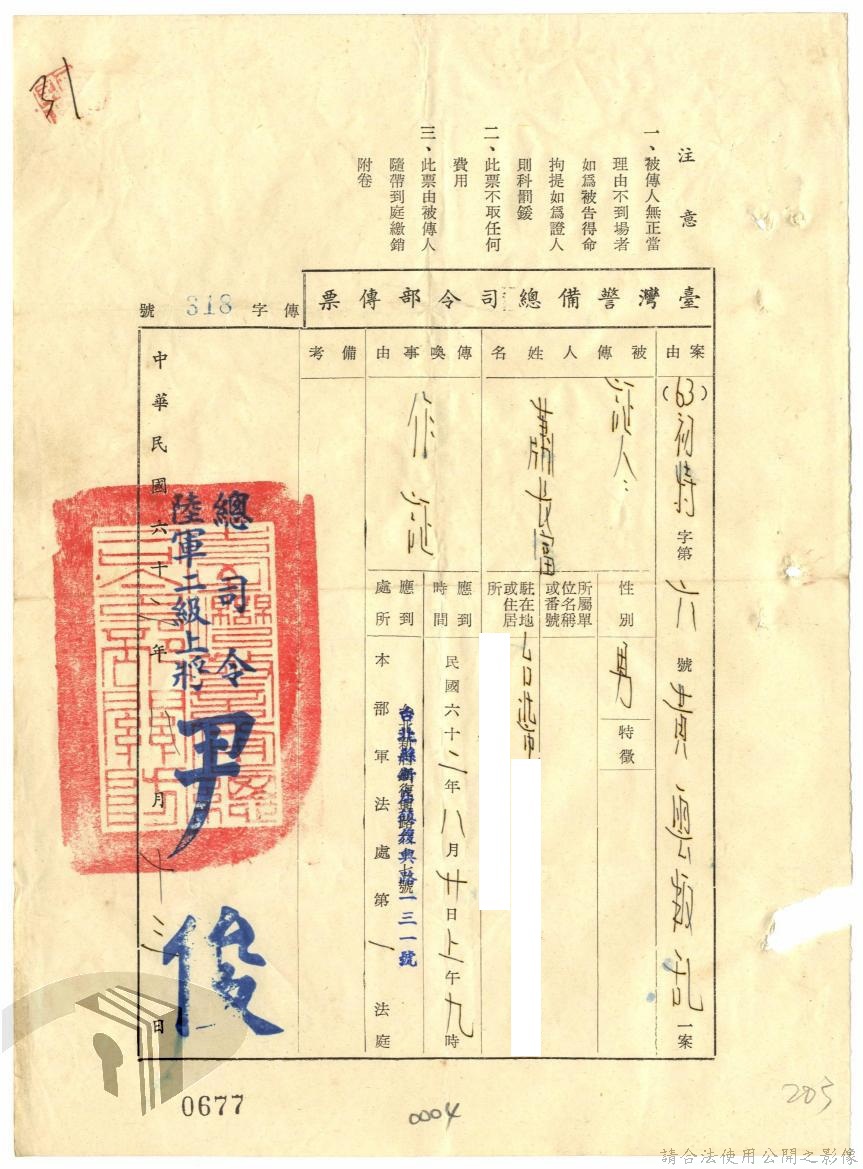 注意
一、被傳人無正當
理由不到場者
如爲被告得命
拘提如爲證人
則科罰鍰
二、此票不取任何
費用
三、此票由被傳人
隨帶到庭繳銷
附卷
臺灣警備總司令部傳票
傳字 318 號
案由
(63)初特字第六號黃雲叛乱一案
被傳人姓名
证人:
蕭長富
性別
男
特徵
所屬單
位名稱
或番號
駐在地
或住居
所
台北市
傳喚事由
作证
應到
時間
民國六十二年八月廿日上午九時
應到
處所
本部軍法處第一法庭
台北縣新店鎮復興路一三一號
備考
中華民國六十二年八月十三日
總司令
陸軍二級上將
尹俊
0677
0004
203
請合法使用公開之影像